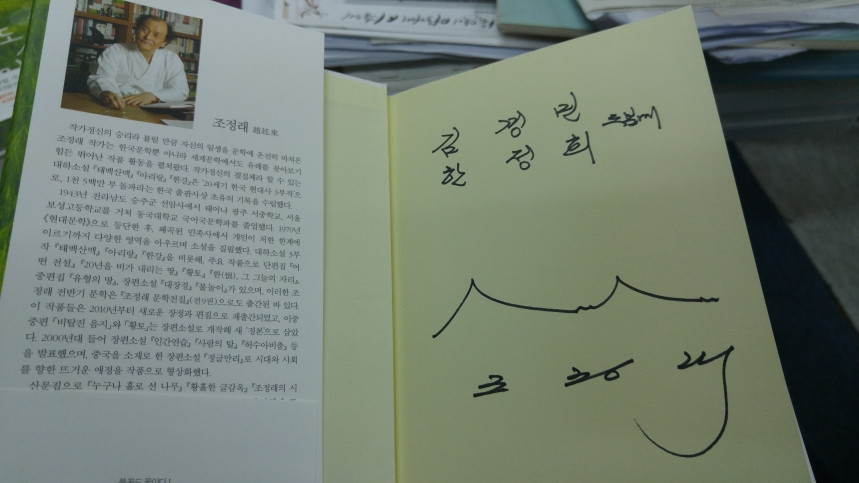 조정래 趙廷來
작가정신의 승리라 불릴 만큼 자신의 일생을 문학에 온전히 바쳐온
조정래 작가는 한국문학뿐 아니라 세계문학에서도 유례를 찾아보기
힘든 뛰어난 작품 활동을 펼쳐왔다. 작가정신의 결집체라 할 수 있는
대하소설 『태백산맥』 『아리랑』 『한강』은 '20세기 한국 현대사 3부작'으
로, 1천 5백만 부 돌파라는 한국 출판사상 초유의 기록을 수립했다.
1943년 전라남도 승주군 선암사에서 태어나 광주 서중학교, 서울
보성고등학교를 거쳐 동국대학교 국어국문학과를 졸업했다. 1970년
《현대문학》으로 등단한 후, 왜곡된 민족사에서 개인이 처한 한계에
이르기까지 다양한 영역을 아우르며 소설을 집필했다. 대하소설 3부
작 『태백산맥』 『아리랑』 『한강』을 비롯해, 주요 작품으로 단편집 『어
떤 전설』 『20년을 비가 내리는 땅』 『황토』 『한(恨), 그 그늘의 자리』,
중편집 『유형의 땅』, 장편소설 『대장경』 『불놀이』가 있으며, 이러한 조
정래 전반기 문학은 『조정래 문학전집』(전9권)으로도 출간된 바 있다.
이 작품들은 2010년부터 새로운 장정과 편집으로 재출간되었고, 이중
중편 「비탈진 음지」와 「황토」는 장편소설로 개작해 새 '정본'으로 삼았
다. 2000년대 들어 장편소설 『인간연습』 『사람의 탈』 『허수아비춤』 등
을 발표했으며, 중국을 소재로 한 장편소설 『정글만리』로 시대와 사회
를 향한 뜨거운 애정을 작품으로 형상화했다.
산문집으로 『누구나 홀로 선 나무』 『황홀한 글감옥』 『조정래의 시
김 경 민
한 정 희
조 정 래